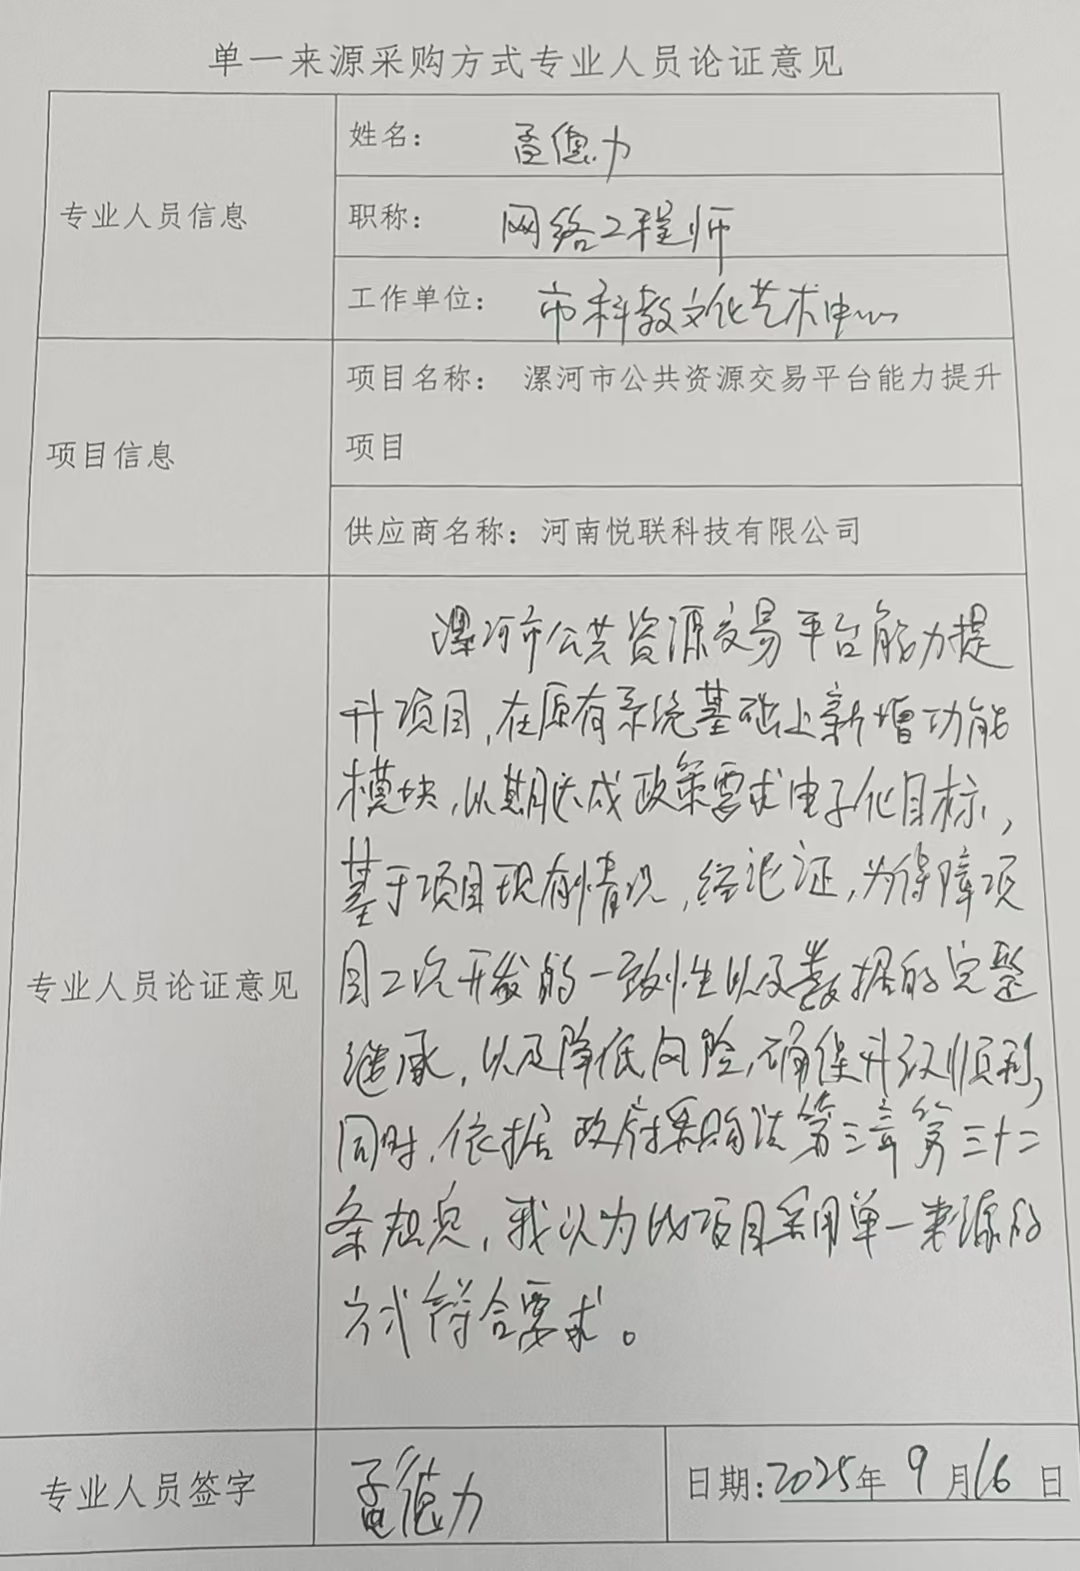 单一来源采购方式专业人员论证意见
专业人员信息
姓名： 孟德力
职称： 网络工程师
工作单位： 市科教文化艺术中心
项目信息
项目名称： 漯河市公共资源交易平台能力提升
项目
供应商名称：河南悦联科技有限公司
专业人员论证意见
漯河市公共资源交易平台能力提
升项目，在原有系统基础上新增功能
模块，以期达成政策要求电子化目标，
基于项目现有情况，经论证，为保障项
目二次开发的一致性以及数据的完整
继承，以及降低风险，确保升级顺利，
同时，依据政府采购法第三章第三十二
条规定，我认为此项目采用单一来源的
方式符合要求。
专业人员签字
孟德力
日期：2025年9月16日